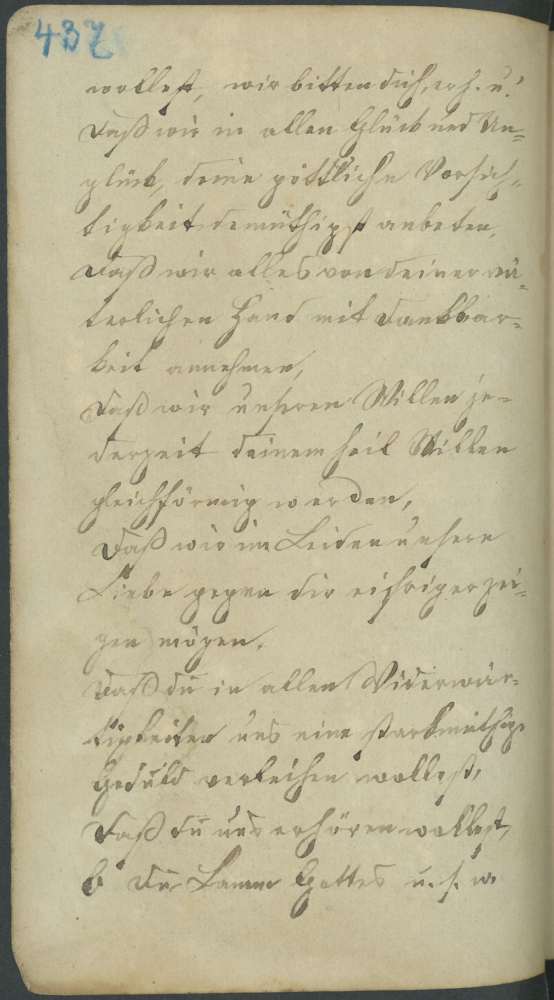 437
wollest, wir bitten dich, erh. u.!
Daß wir in allen Glück und Un=
glück, deine göttliche Vorsich=
tigkeit demüthigst anbeten,
Daß wir alles von deiner vä=
terlichen Hand mit Dankbar=
keit annehmen,
Daß wir unseren Willen je=
derzeit deinem heil Willen
gleichförmig werden,
Daß wir im Leiden unsere
Liebe gegen dir eifriger zei=
gen mögen.
Daß du in allen Widerwär=
tigkeiten uns eine starkmüthige
Geduld verleihen wollest,
Daß du uns erhören wollest,
O Du Lamm Gottes u. s. w.